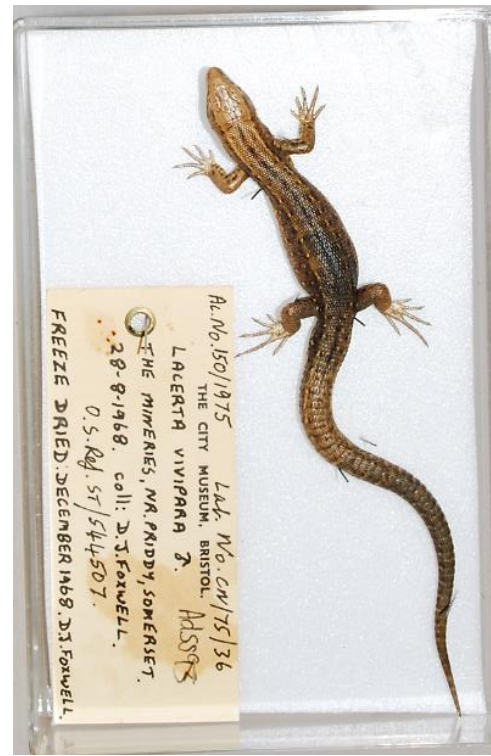 Ac.No.150/1975 Lab. No. CN/75/36
THE CITY MUSEUM, BRISTOL.
LACERTA VIVIPARA ♂.
THE MINERIES, NR. PRIDDY, SOMERSET.
28-8-1968. coll: D.J. FOXWELL.
O.S. Ref. ST/544507.
FREEZE DRIED: DECEMBER 1968. D.J. FOXWELL.